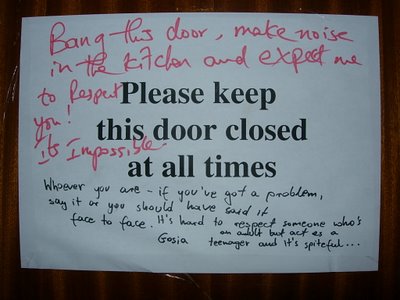 Bang this door, make noise
in the kitchen and expect me
to Respect
you!
Its Impossible.
Please keep
this door closed
at all times
Whoever you are - if you've got a problem,
say it or you should have said it
face to face. It's hard to respect someone who's
an adult but act as a
Gosia teenager and it's spiteful...